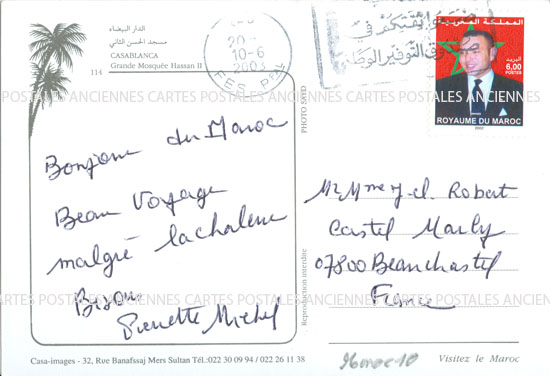 الدار البيضاء
مسجد الحسن الثاني
CASABLANCA
Grande Mosquée Hassan II
114
Bonjour du Maroc
Beau Voyage
malgré la chaleur
Bisous
Pierrette Michel
Casa-images - 32, Rue Banafssaj Mers Sultan Tél:022 30 09 94 / 022 26 11 38
PHOTO SAYD
Reproduction interdite
20
10-6
2003
FES
صندوق التوفير الوطني
المملكة المغربية
البريد
6,00
POSTES
ROYAUME DU MAROC
2002
Mr Mme J.cl. Robert
Castel Marly
07800 Beauchastel
France
96maroc10
Visitez le Maroc
POSTALES ANCIENNES CARTES POSTALES ANCIENNES CARTES POSTALES ANCIENNES
CARTES POSTALES ANCIENNES CARTES POSTALES ANCIENNES